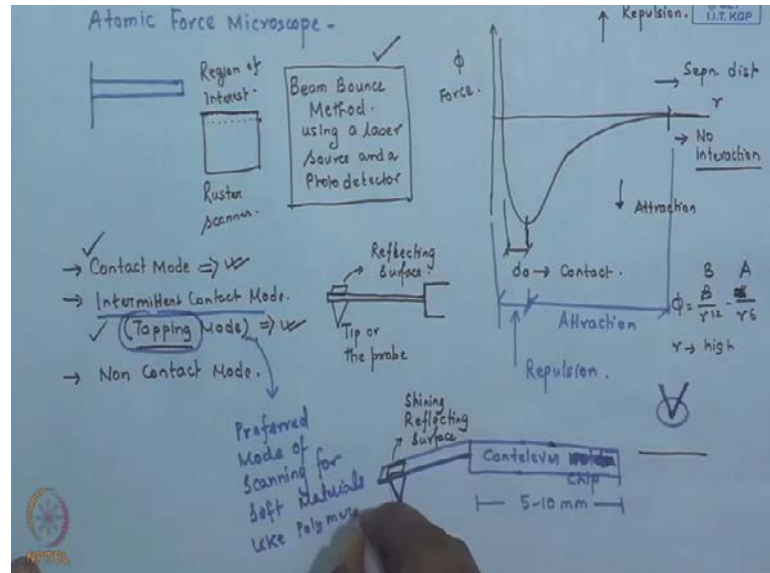 Atomic Force Microscope -
Region of
Interest.
Ruster
scanner.
Beam Bounce
Method.
using a laser
source and a
Photo detector
Repulsion.
I.I.T. KGP
ϕ
Force.
→ Sepn. dist
r
→ No
Interaction
↓ Attraction
do → Contact.
Attraction
Repulsion.
B A
ϕ = B/r12 - /r6
r → high
→ Contact Mode =>
→ Intermittent Contact Mode.
(Tapping Mode) =>
→ Non Contact Mode.
Reflecting
surface.
Tip or
the probe
Preferred
Mode of
Scanning for
Soft Materials
like Polymers
Shining
Reflecting
Surface
Cantelever
Chip
5-10 mm
NPTEL